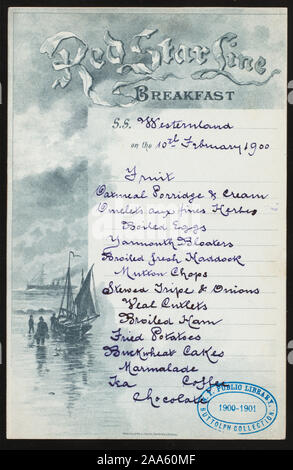 Red Star Line
BREAKFAST
S.S. Westernland
on the 10th February 1900
Fruit
Oatmeal Porridge & Cream
Omelets aux fines Herbes
Boiled Eggs
Yarmouth Bloaters
Broiled fresh Haddock
Mutton Chops
Stewed Tripe & Onions
Veal Cutlets
Broiled Ham
Fried Potatoes
Buckwheat Cakes
Marmalade
Tea Coffee
Chocolate
N.Y. PUBLIC LIBRARY
1900-1901
BUTTOLPH COLLECTION
alamy
Image ID: 2AA60MF
www.alamy.com